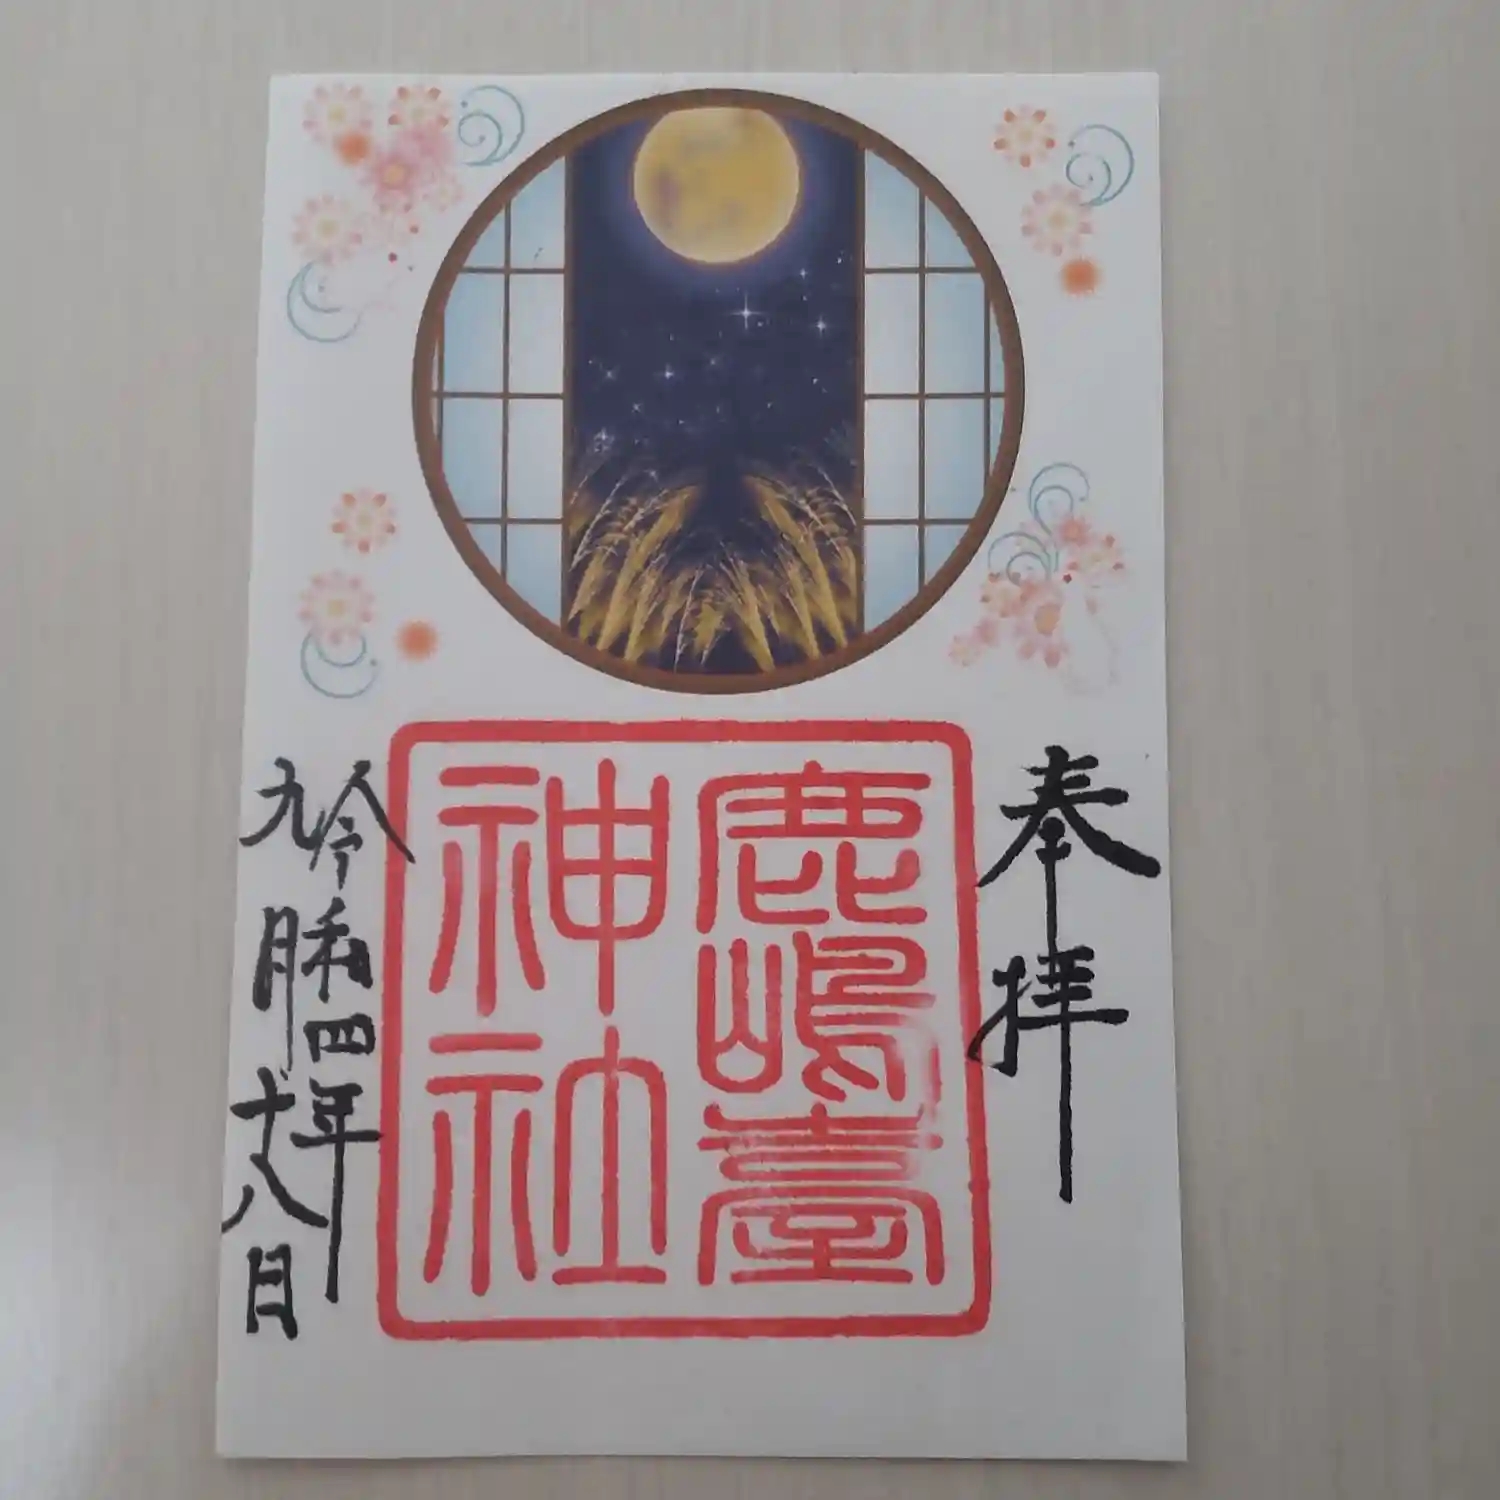 奉拝
鹿嶋臺
神社
令和四年
九月十八日